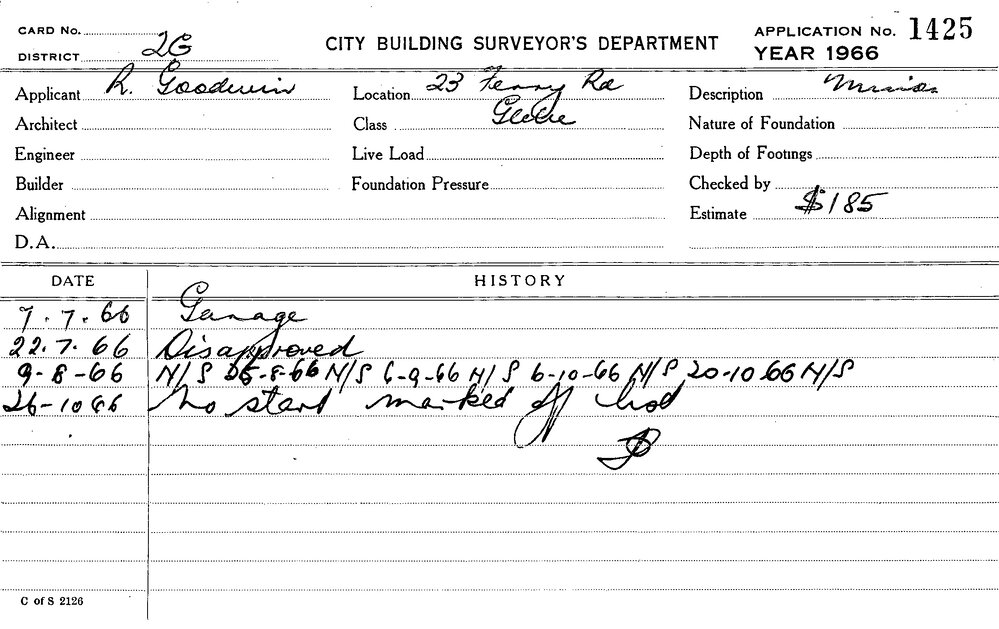 CARD No.
DISTRICT 2G
CITY BUILDING SURVEYOR'S DEPARTMENT
APPLICATION No. 1425
YEAR 1966
Applicant R. Goodwin
Location 23 Ferry Rd
Glebe
Description Minor
Architect
Class
Nature of Foundation
Engineer
Live Load
Depth of Footings
Builder
Foundation Pressure
Checked by
Alignment
Estimate $185
D.A.
DATE HISTORY
7.7.66 Garage
22.7.66 Disapproved
9-8-66 N/S 25-8-66 N/S 6-9-66 N/S 6-10-66 N/S 20-10 66 N/S
26-10 66 No start marked off
C of S 2126